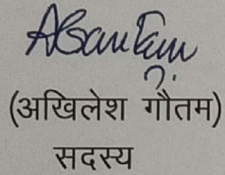 (अखिलेश गौतम)
सदस्य